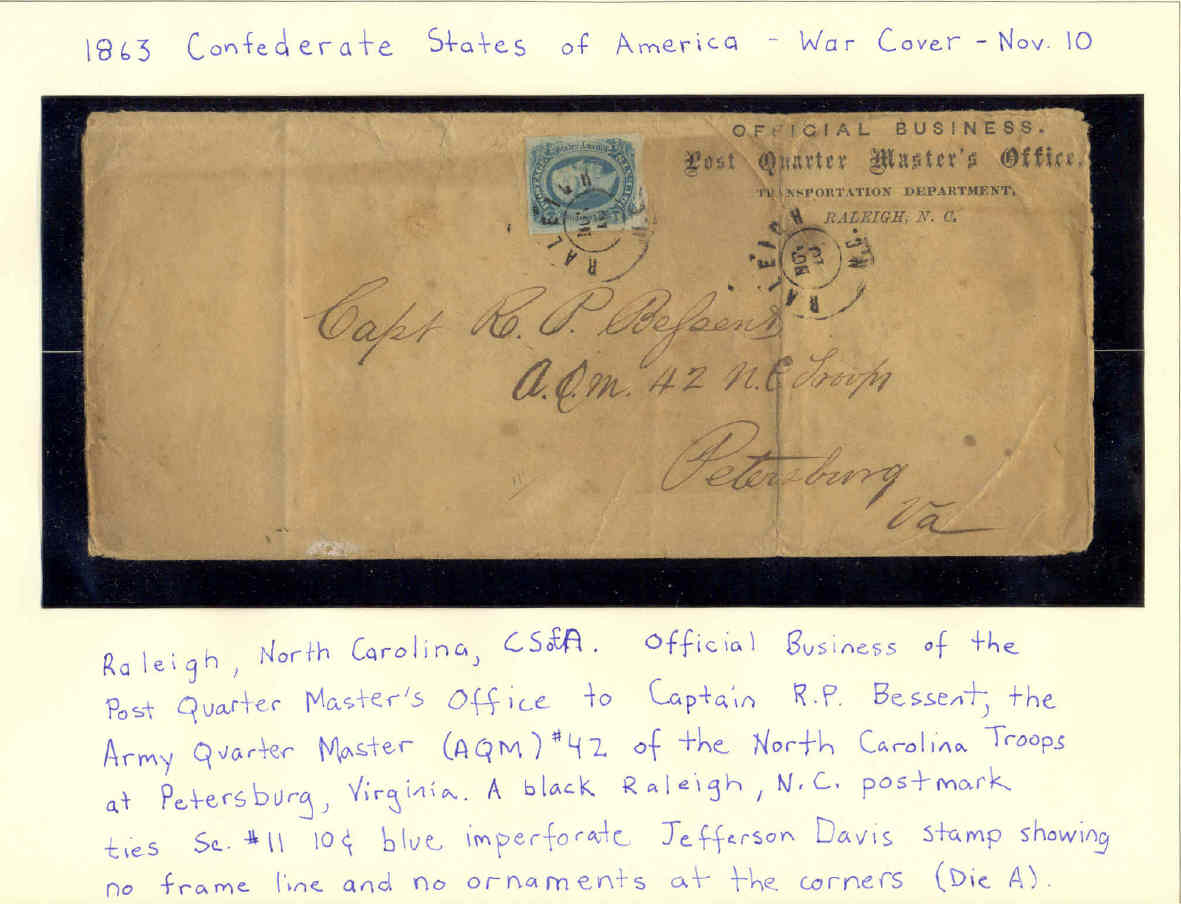 1863 Confederate States of America - War Cover - Nov. 10
OFFICIAL BUSINESS.
Post Quarter Master's Office,
TRANSPORTATION DEPARTMENT,
RALEIGH, N. C.
RALEIGH
NOV
RALEIGH N.C.
NOV 10
Capt R. P. Bessent
A.Q.M. 42 N.C Troops
Petersburg
Va
Raleigh, North Carolina, CSofA. Official Business of the
Post Quarter Master's Office to Captain R.P. Bessent, the
Army Quarter Master (AQM) #42 of the North Carolina Troops
at Petersburg, Virginia. A black Raleigh, N.C. postmark
ties Sc. #11 10¢ blue imperforate Jefferson Davis stamp showing
no frame line and no ornaments at the corners (Die A).